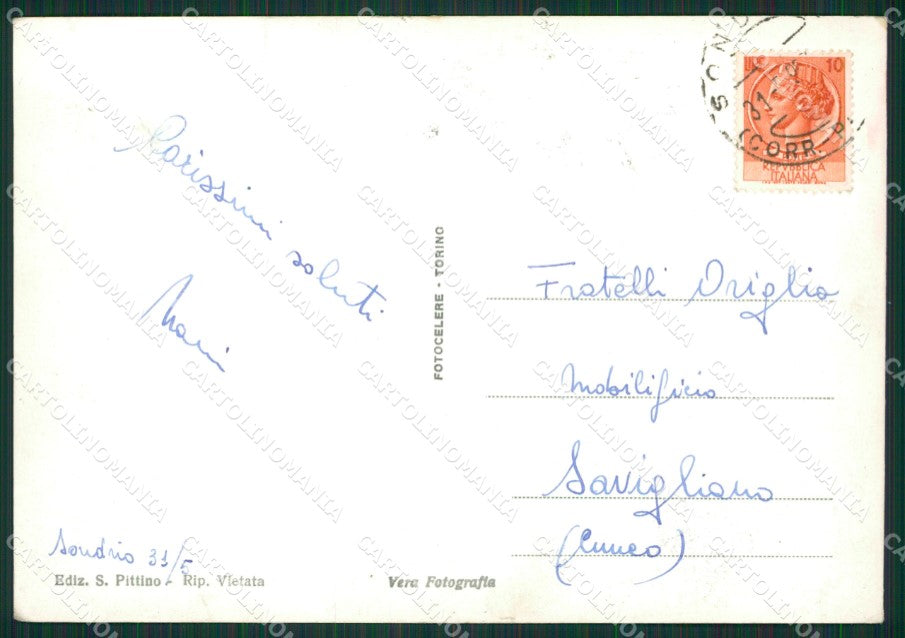 Carissimi saluti
Sondrio 31/5
Ediz. S. Pittino - Rip. Vietata
Vera Fotografia
FOTOCELERE - TORINO
SOND
31
(CORR. P.
L. 10
REPVBBLICA
ITALIANA
Fratelli Origlia
Mobilificio
Savigliano
(Cuneo)
CARTOLINOMANIA